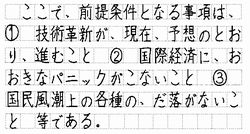 ここで、前提条件となる事項は、
① 技術革新が、現在、予想のとお
り、進むこと ② 国際経済に、お
おきなパニックがこないこと ③
国民風潮上の各種の、だ落がないこ
と 等である。